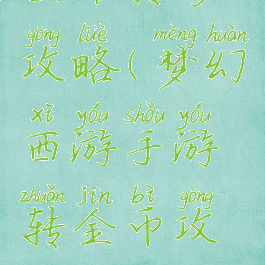 gōng lüè mèng huàn
攻略(梦幻
xī yóu shǒu yóu
西游手游
zhuǎn jīn bì gōng
转金币攻